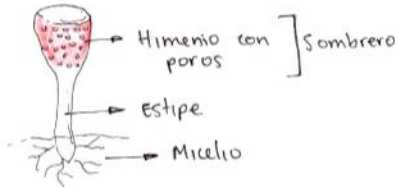 Himenio con
poros
Sombrero
Estipe
Micelio